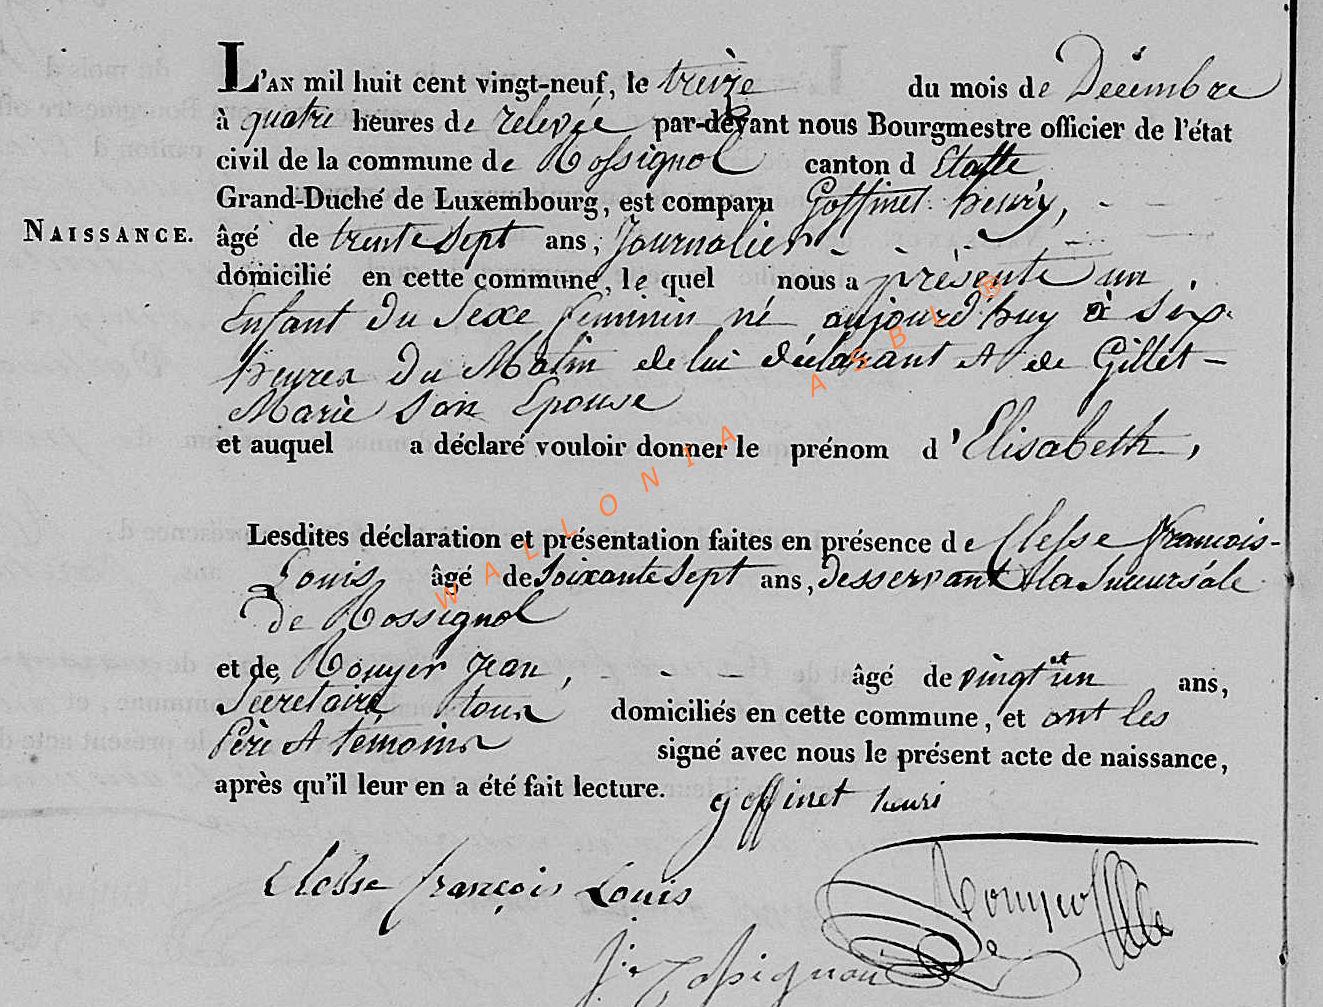 L'AN mil huit cent vingt-neuf, le treize du mois de Décembre
à quatre heures de relevée par-devant nous Bourgmestre officier de l'état
civil de la commune de Rossignol canton d'Etalle
Grand-Duché de Luxembourg, est comparu Goffinet henry,
NAISSANCE. âgé de trente Sept ans, Journalier
domicilié en cette commune, le quel nous a présenté un
Enfant du Sexe féminin né aujourd'huy à six
heures du Matin de lui déclarant et de Gillet
Marie Son Epouse
et auquel a déclaré vouloir donner le prénom d'Elisabeth,
Lesdites déclaration et présentation faites en présence de Clesse François-
Louis âgé de Soixante Sept ans, Desservant la Sucursale
de Rossignol
et de Rouyer Jean, âgé de vingt et un ans,
Secretaire tous domiciliés en cette commune, et ont les
Père et témoins signé avec nous le présent acte de naissance,
après qu'il leur en a été fait lecture.
goffinet henri
Clesse françois Louis
Rouyer
WALLONIA ASBL ®